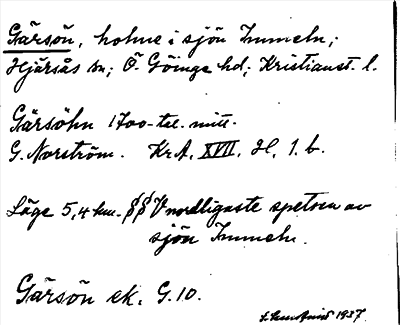 Gärsön, holme i sjön Immeln;
Hjärsås sn; Ö. Göinge hd; Kristianst. l.
Gärsöhn 1700-tal. mitt.
G. Norström. Kr.A. XVII, H, 1. b.
Läge 5,4 km. § § V nordligaste spetsen av
sjön Immeln.
Gärsön ek. G. 10.
1937.